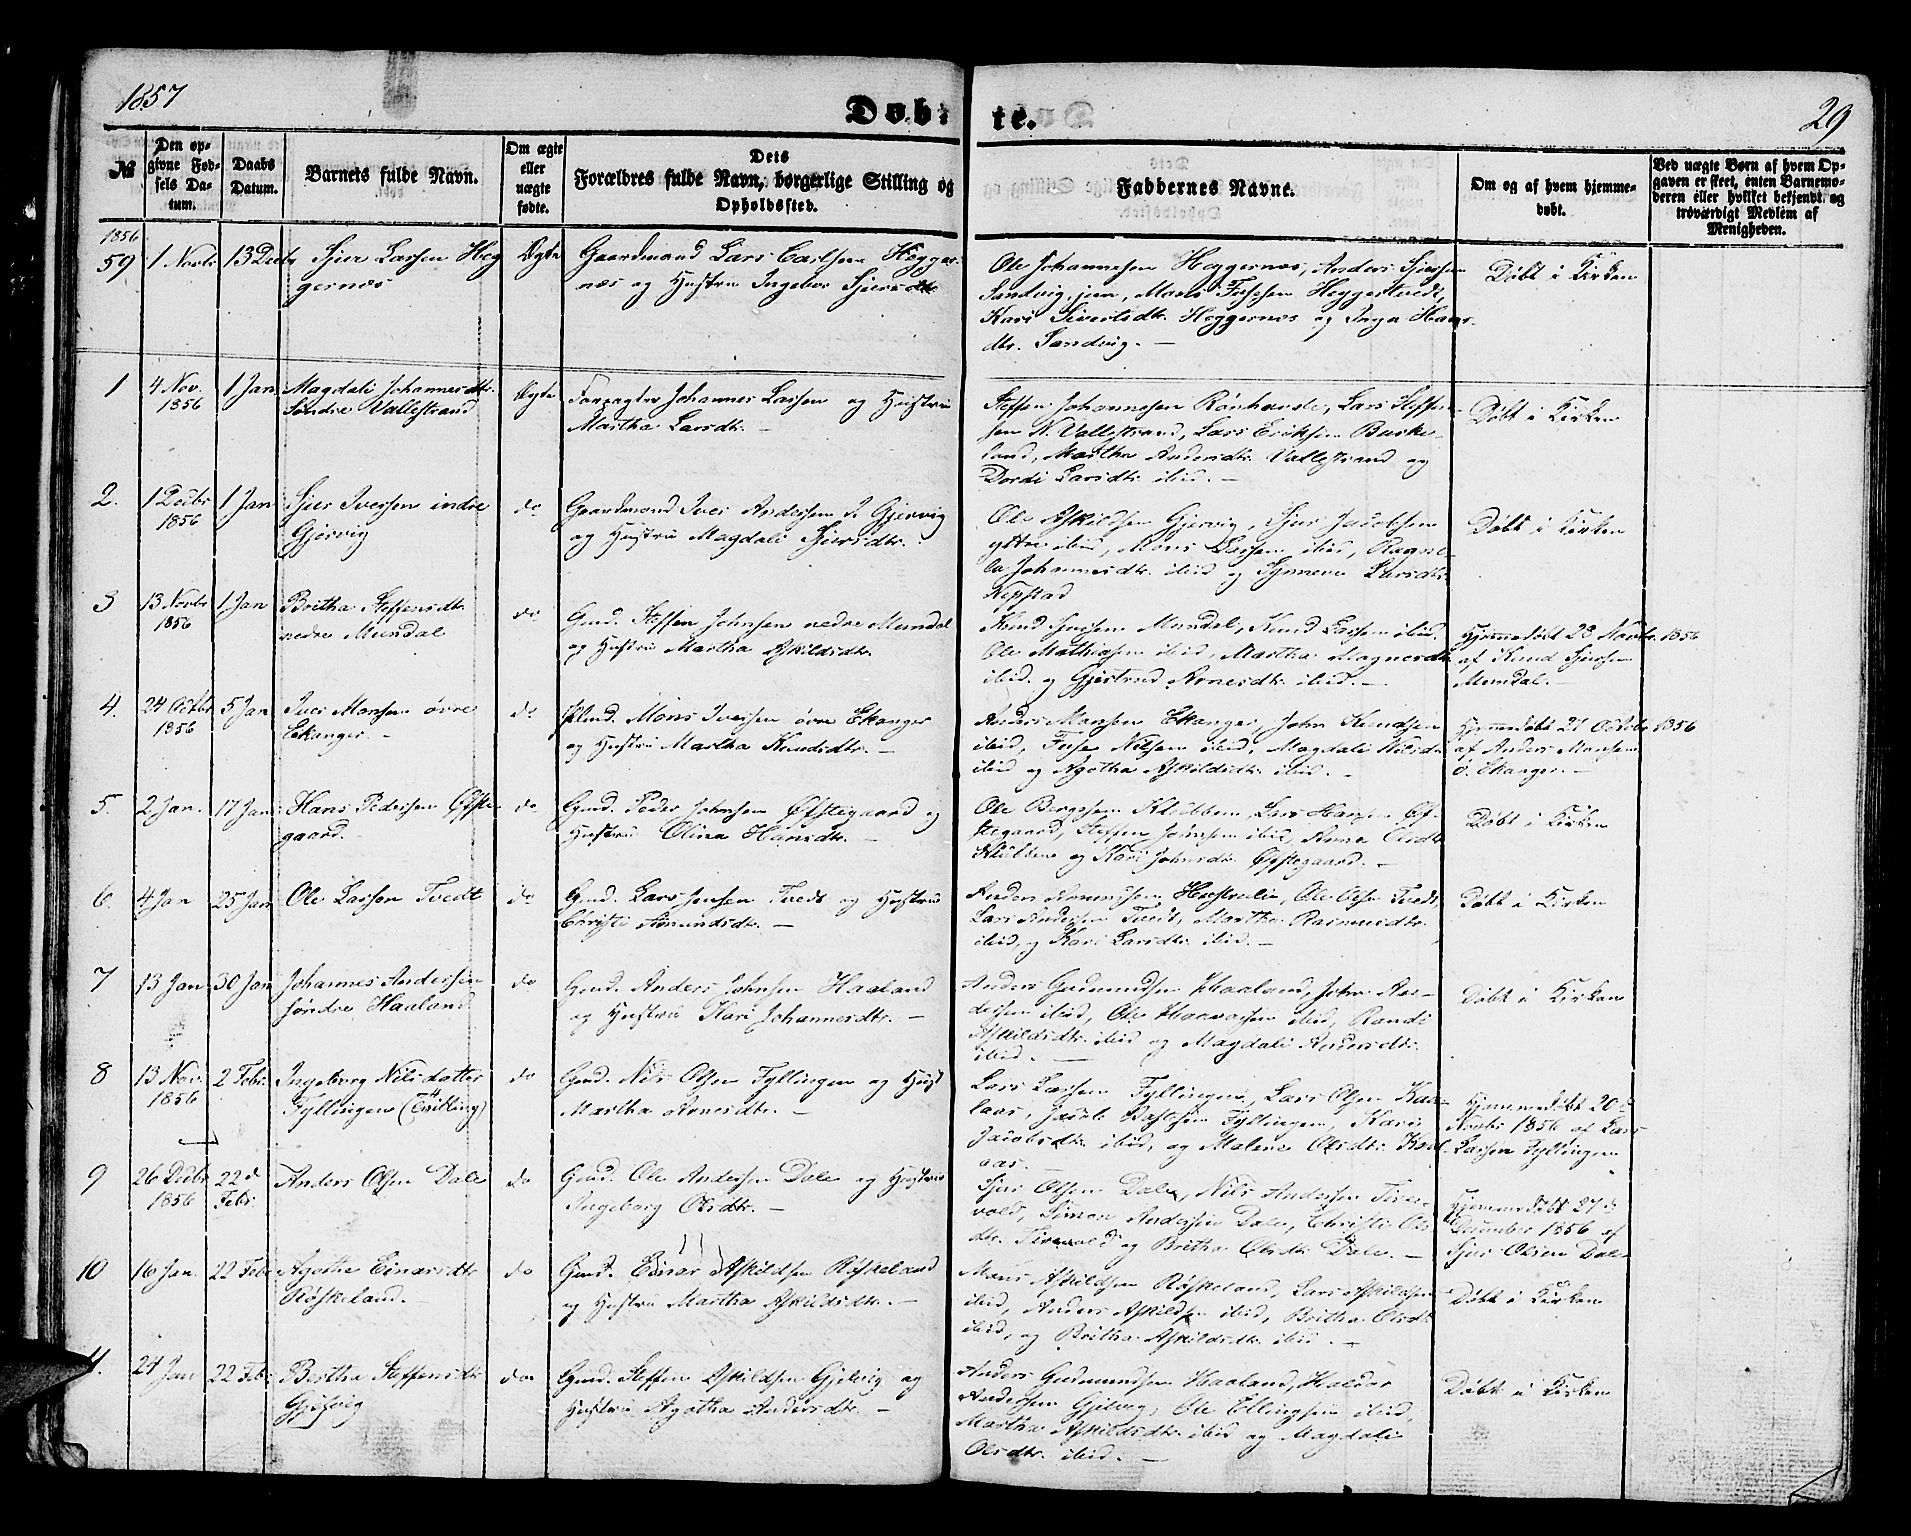 1857
Døbte.
29
№
Den op-
givne Fød-
sels Da-
tum.
Daabs
Datum.
Barnets fulde Navn.
Om ægte
eller
uægte
fødte.
Dets
Forældres fulde Navn, borgerlige Stilling og
Opholdssted.
Faddernes Navne.
Om og af hvem hjemme-
døbt.
Ved uægte Børn af hvem Op-
gaven er skeet, enten Barnemo-
deren eller hvilket bekjendt og
troværdigt Medlem af
Menigheden.
1856
59 1 Novbr 13 Decbr Sjur Larsen Heg
gernæs
Ægte
Gaardmand Lars Carlsen Hegger-
næs og Hustru Ingebor Sjursdtr
Ole Johannesen Heggernæs, Anders Sjursen
Sandvig jun, Mons Fusesen Heggertvedt,
Kari Sivertsdtr. Heggernæs og Inga Hans-
dtr. Sandvig. —
Døbt i Kirken
1 4 Nov. 1856 1 Jan Magdali Johannesdtr.
Søndre Vallestrand
Ægte
Forpagter Johannes Larsen og Hustru
Martha Larsdtr. —
Steffen Johannesen Rønhovde, Lars Steffen-
sen N. Vallestrand, Lars Eriksen Buske-
land, Martha Andersdtr. Vallestrand og
Dordi Larsdtr ibid. —
Døbt i Kirken
2. 1 Decbr 1856 1 Jan Sjur Iversen indre
Gjervig
do
Gaardmand Iver Andersen I. Gjervig
og Hustru Magdali Sjursdtr.
Ole Askildsen Gjervig, Sjur Jacobsen
yttre ibid, Mons Larsen ibid, Ragne-
la Johannesdtr. ibid og Synneve Larsdtr.
Repstad
Døbt i Kirken
3 13 Novbr 1856 1 Jan Britha Steffensdtr.
nedre Mundal
do
Gmd. Steffen Johnsen nedre Mundal
og Hustru Martha Askildsdtr.
Knud Sjursen Mundal, Knud Larsen ibid.
Ole Mathiasen ibid, Martha Magnesdtr
ibid. og Gjertrud Arnesdtr. ibid. —
Hjemmedøbt 23 Novbr. 1856
af Knud Sjursen
Mundal. —
4. 24 Octbr 1856 5 Jan Iver Monsen øvre
Ekanger. —
do
Gmd. Mons Iversen øvre Ekanger
og Hustru Martha Knudsdtr. —
Anders Monsen Ekanger, John Knudsen
ibid, Fuse Nilsen ibid, Magdali Nilsdtr
ibid og Agotha Askildsdtr. ibid. —
Hjemmedøbt 27 Octobr. 1856
af Anders Monsen
ø. Ekanger. —
5. 2 Jan. 17 Jan Hans Pedersen Øfste
gaard. —
do
Gmd. Peder Johnsen Øfstegaard og
Hustru Olina Hansdtr. —
Ole Bergesen Klubben, Lars Hansen Øf-
stegaard, Steffen Johnsen ibid, Anna Olsdtr
Klubben og Kari Johnsdtr. Øfstegaard. —
Døbt i Kirken
6. 4 Jan 25 Jan Ole Larsen Tvedt
do
Gmd. Lars Jensen Tvedt og Hustru
Christi Amundsdtr. —
Anders Amundsen, Ole Olsen Tvedt
Lars Andersen Tvedt, Martha Rasmusdtr.
ibid, og Kari Larsdtr. ibid. —
Døbt i Kirken
7 13 Jan 30 Jan Johannes Andersen
søndre Haaland
do
Gmd. Anders Johnsen Haaland
og Hustru Kari Johannesdtr. —
Anders Gudmundsen Haaland, John An-
dersen ibid, Ole Haavarsen ibid, Randi
Askildsdtr. ibid og Magdali Andersdtr.
ibid. —
Døbt i Kirken
8 13 Nov. 1856 2 Febr. Ingeborg Nilsdatter
Fyllingen (Tvilling)
do
Gmd. Nils Olsen Fyllingen og Hust
Martha Arnesdtr. —
Lars Larsen Fyllingen, Lars Olsen Kaa-
laas, Jacob Fyllingen, Kari
Jacobsdtr. ibid, og Malene Olsdtr. Kaal-
aas.
Hjemmedøbt 20de
Novbr 1856 af Lars
Larsen Fyllingen
9 26 Decbr 1856 22de Febr. Anders Olsen Dale
do
Gmd. Ole Andersen Dale og Hustru
Ingeborg Olsdtr. —
Sjur Olsen Dale, Nils Andersen Tire-
vold, Simon Andersen Dale, Christi Ols-
dtr. Tirevold og Britha Olsdtr Dale. —
Hjemmedøbt 27de
December 1856 af
Sjur Olsen Dale
10 16 Jan. 22 Febr Agotha Einarsdtr
Røskeland. —
do
Gmd. Einar Askildsen Røskeland
og Hustru Martha Askildsdtr. —
Mons Askildsen Røskeland, Lars Askildsen
ibid, Anders Askildsen ibid, Britha Olsdtr
ibid, og Britha Askildsdtr ibid. —
Døbt i Kirken
11. 24 Jan 22 Febr Bertha Steffensdtr
Gjelvig
do
Gmd. Steffen Askildsen Gjelvig og
Hustru Agotha Andersdtr. —
Anders Gudmundsen Haaland, Haldor
Andersen Gjelvig, Ole Ellingsen ibid,
Martha Askildsdtr. ibid og Magdali
Olsdtr. ibid. —
Døbt i Kirken